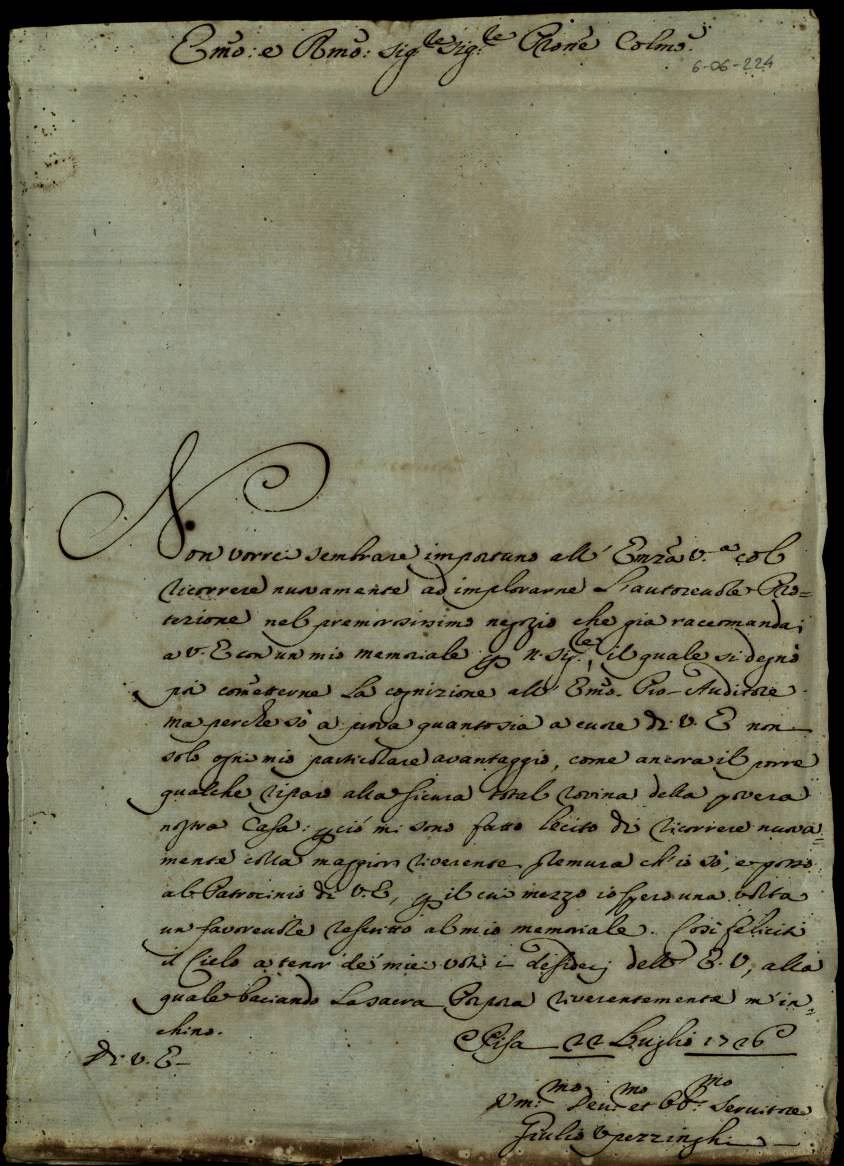 Emo: e Rmo: Sig.le Sig.le Prone Colmo:
6-06-224
Non vorrei sembrare importuno all' Emza V.a col
ricorrere nuovamente ad implorarne L'autorevole Pro=
tezione nel premorosissimo negozio che già raccomandai
a V. E con un mio memoriale p n. Sig.le, il quale si degnò
poi cometterne la cognizione all' Emo. Pro-Auditore
ma perche sò a prova quanto sia a cuore di V. E non
solo ogni mio particolare avantaggio, come ancora il porre
qualche riparo alla sicura total rovina della povera
nostra Casa: p ciò mi sono fatto lecito di ricorrere nuova=
mente colla maggior riverente premura ch'io sò, e posso
al Patrocinio di V. E, p il cui mezzo io spero una volta
un favorevole rescritto al mio memoriale. Così feliciti
il Cielo a tenor de' miei voti i desiderj dell' E. V, alla
quale baciando la sacra Porpora riverentemente m'in=
chino.
Pisa 22 Luglio 1726
Di V. E
Vm:mo Dev:mo et Obb:mo Servitore
Giulio Upezzinghi